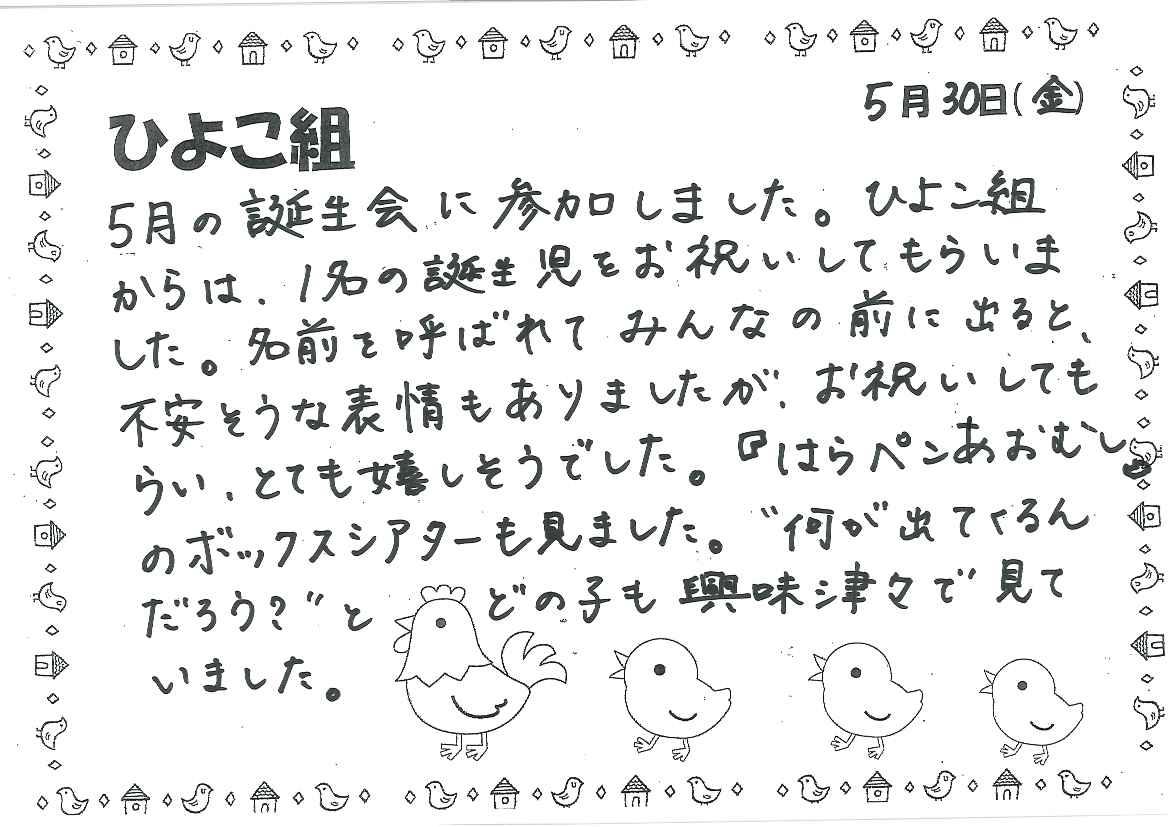 5月30日(金)
ひよこ組
5月の誕生会に参加しました。ひよこ組
からは、1名の誕生児をお祝いしてもらいま
した。名前を呼ばれてみんなの前に出ると、
不安そうな表情もありましたが、お祝いしても
らい、とても嬉しそうでした。『はらペこあおむし』
のボックスシアターも見ました。“何が出てくるん
だろう?”とどの子も興味津々で見て
いました。